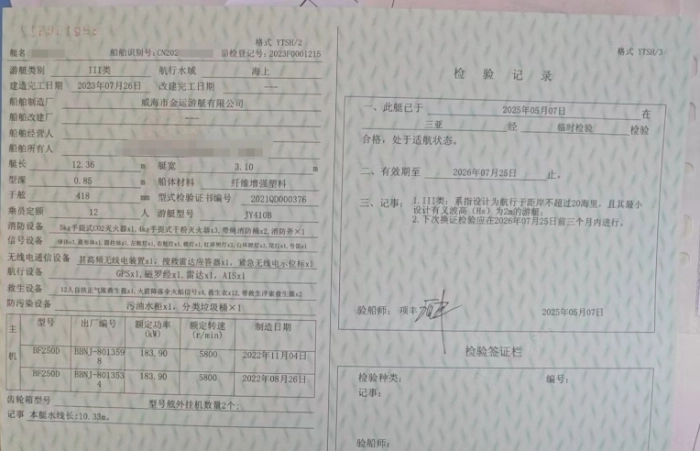 格式 YTSH/2
艇名
船舶识别号:CN202
船检登记号:2023P0001215
游艇类别 III类 航行水域 海上
建造完工日期 2023年07月26日 改建完工日期 ---
船舶制造厂 威海市金运游艇有限公司
船舶改建厂 ---
船舶经营人
船舶所有人
艇长 12.36 m 艇宽 3.10 m
型深 0.85 m 船体材料 纤维增强塑料
干舷 418 mm 型式检验证书编号 2021QD000376
乘员定额 12 人 游艇型号 JY410B
消防设备 5kg手提式CO2灭火器x1,4kg手提式干粉灭火器x3,带绳消防桶x2,消防斧×1
信号设备
无线电通信设备 甚高频无线电装置x1,搜救雷达应答器x1,紧急无线电示位标x1
航行设备 GPSx1,磁罗经x1,雷达x1,AISx1
救生设备
防污染设备 污油水柜x1,分类垃圾桶×1
主机
型号 出厂编号 额定功率(kW) 额定转速(r/min) 制造日期
BF250D BBNJ-8013598 183.90 5800 2022年11月04日
BF250D BBNJ-8013534 183.90 5800 2022年08月26日
齿轮箱型号 型号舷外挂机数量2个;
记事 本艇水线长:10.33m。
格式 YTSH/3
检验记录
一、此艇已于 2025年05月07日 在
三亚 经 临时检验 检验
合格,处于适航状态。
二、有效期至 2026年07月25日 止。
三、记事:
1.III类:系指设计为航行于距岸不超过20海里,且其最小
设计有义波高(Hs)为2m的游艇;
2.下次换证检验应在2026年07月25日前三个月内进行。
验船师: 项丰 2025年05月07日
检验签证栏
检验种类: 编号:
验船师: